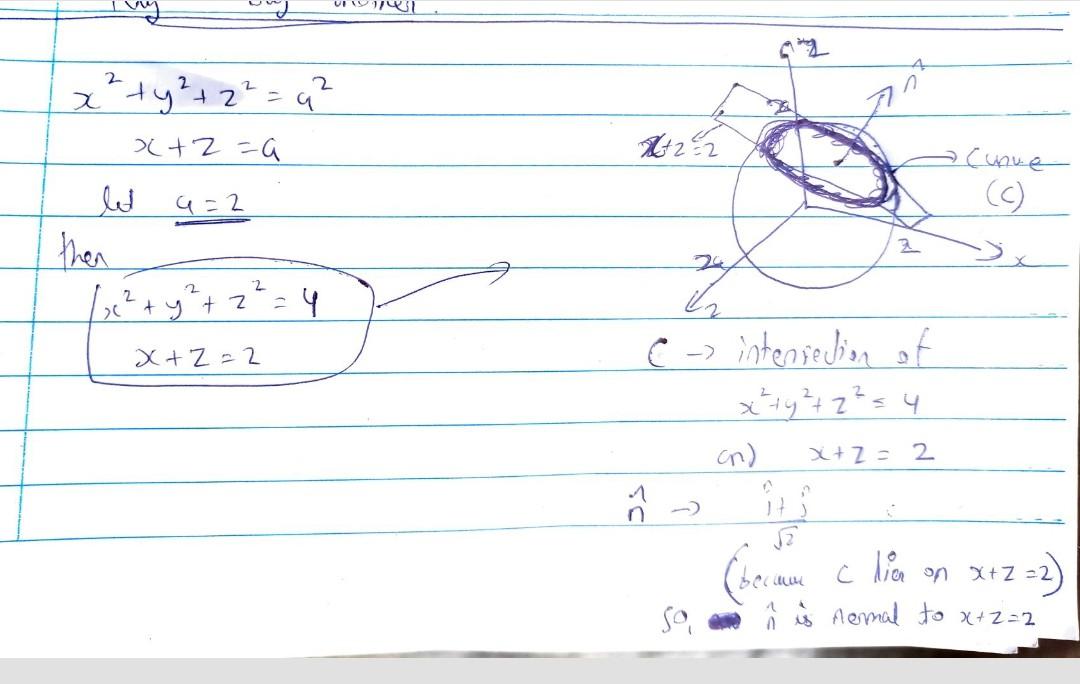 x² + y² + z² = a²
x + z = a
let a = 2
then
x² + y² + z² = 4
x + z = 2
n̂
x+z=2
Curve
(C)
2
x
2
C → intersection of
x² + y² + z² = 4
x + z = 2
n̂ → (î + ĵ)/√2
(because C lies on x+z=2)
so, n̂ is normal to x+z=2